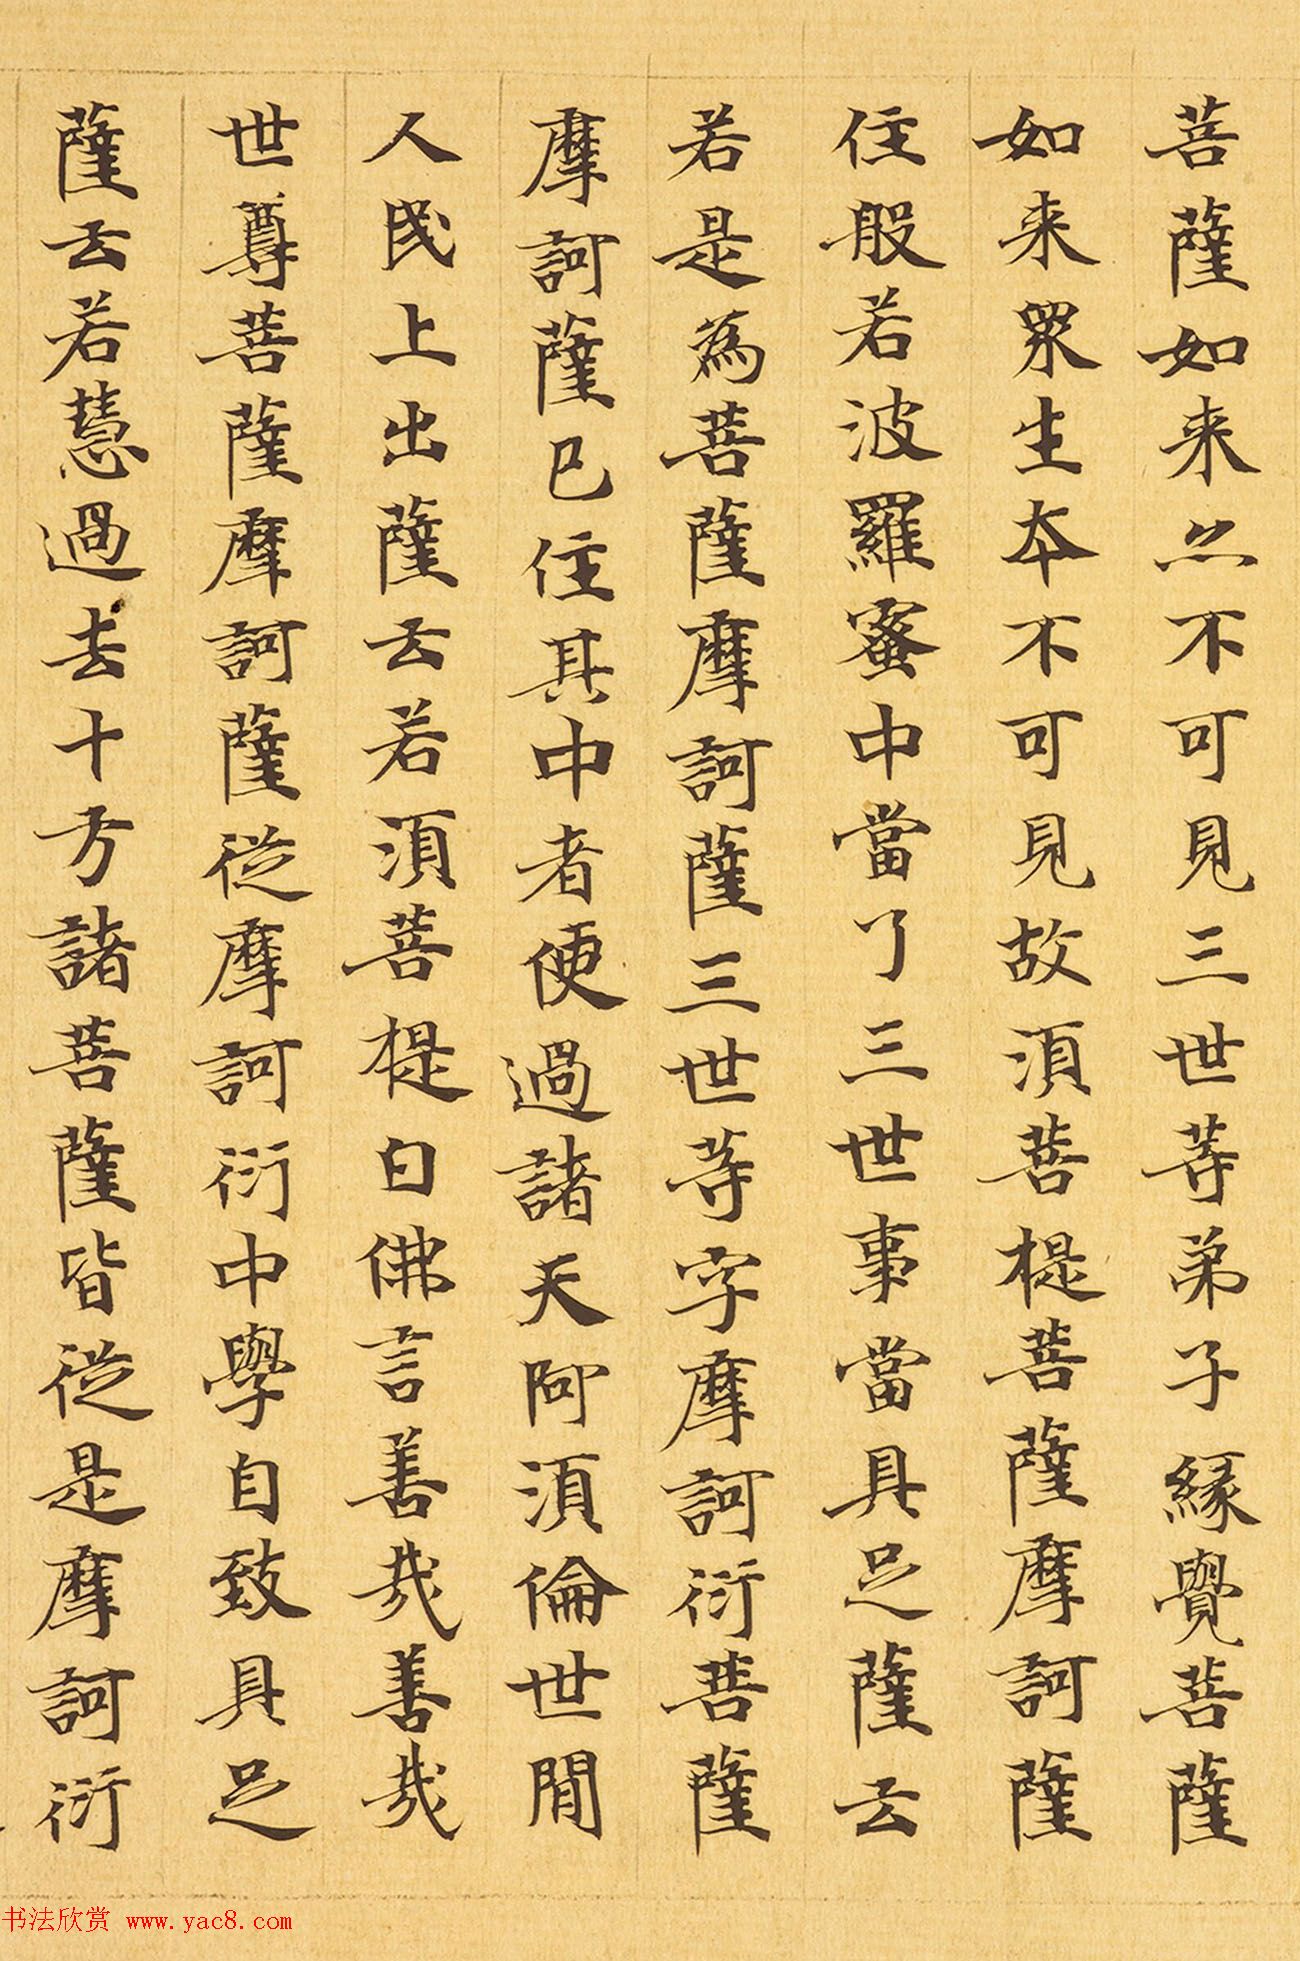 菩薩如来亦不可見三世等弟子緣覺菩薩
如来眾生本不可見故須菩提菩薩摩訶薩
住般若波羅蜜中當了三世事當具足薩云
若是為菩薩摩訶薩三世等字摩訶衍菩薩
摩訶薩已住其中者便過諸天阿須倫世間
人民上出薩云若須菩提白佛言善哉善哉
世尊菩薩摩訶薩從摩訶衍中學自致具足
薩云若慧過去十方諸菩薩皆從是摩訶衍
书法欣赏 www.yac8.com